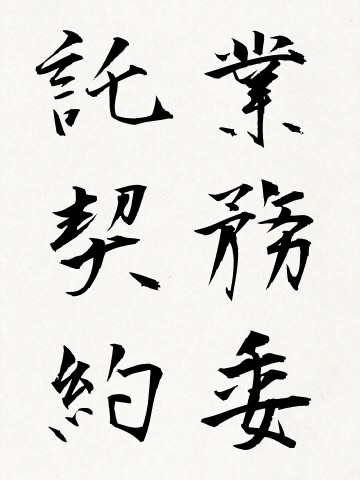 業務委
託契約